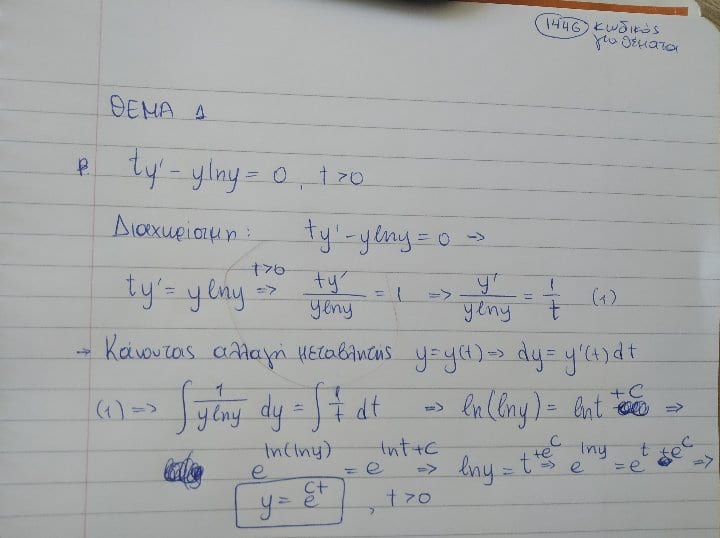 1446 κωδικός
για θέματα
ΘΕΜΑ 1
β. ty' - ylny = 0, t>0
Διαχωρίσιμη: ty' - ylny = 0 ->
ty' = ylny t>0 => ty'/ylny = 1 => y'/ylny = 1/t (1)
→ Κάνοντας αλλαγή μεταβλητής y=y(t) => dy = y'(t)dt
(1) => ∫ 1/ylny dy = ∫ 1/t dt => ln(lny) = lnt +C =>
e^ln(lny) = e^lnt+C => lny = t+e^C => e^lny = e^t+e^C =>
y = e^ct , t>0